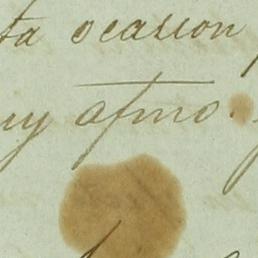 ta ocasion
uy afmo.